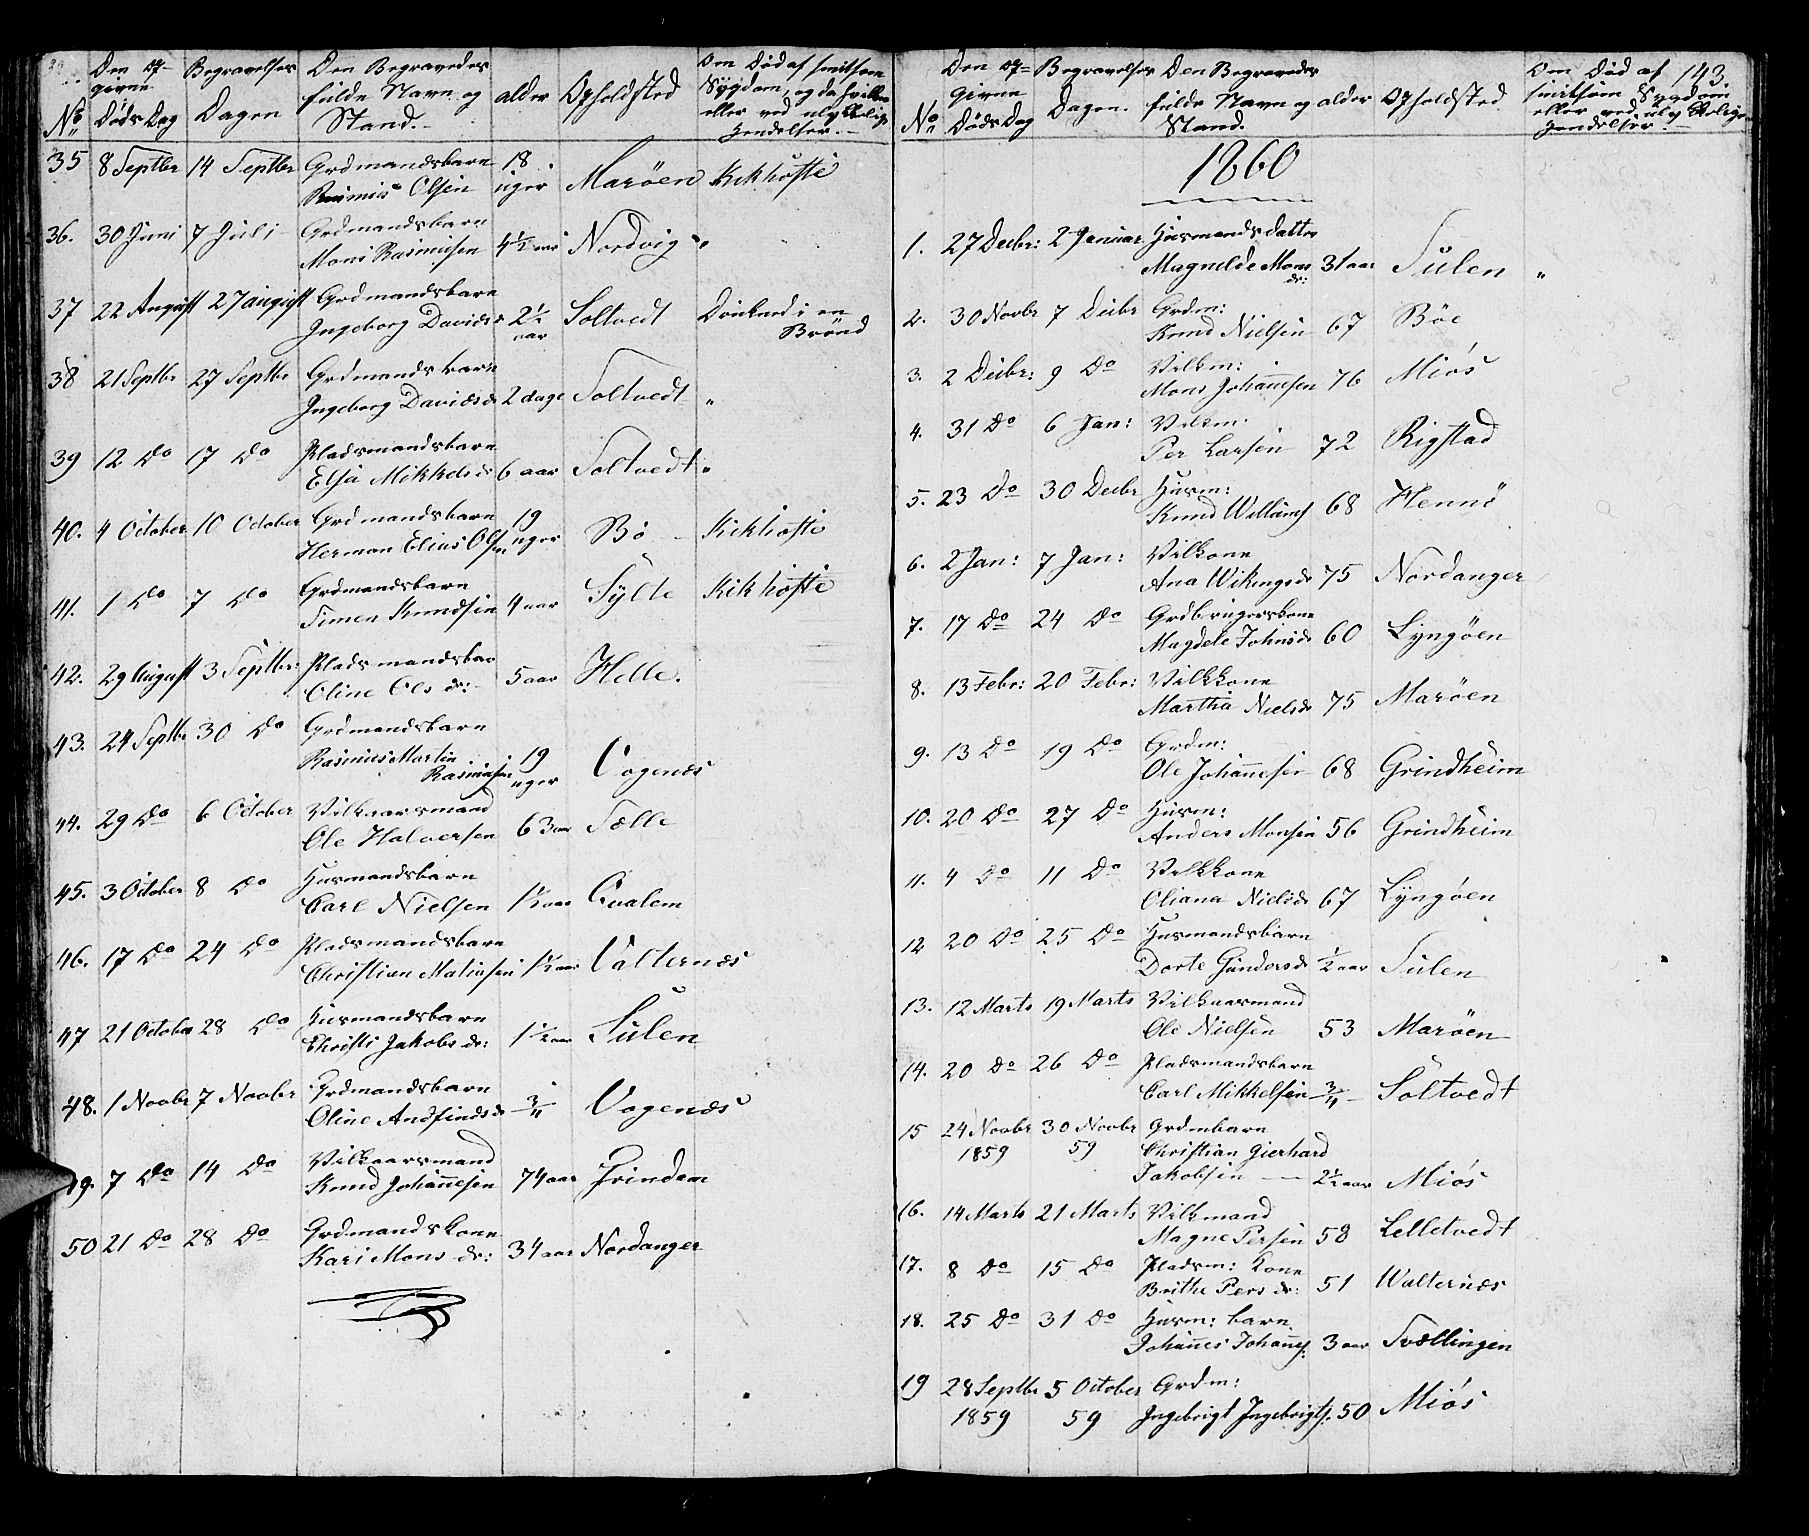 Den op-
givne
Døds Dag
Begravelses
Dagen
Den Begravedes
fulde Navn og
Stand.
alder
Opholdsted
Om Død af smitsom
Sygdom, og da hvilken
eller ved ulykkelige
Hendelser.
No
35 8 Septbr 14 Septbr Grdmandsbarn
Rasmus Olsen 18 uger Marøen Kikhoste
36. 30 Juni 7 Juli Grdmandsbarn
Mons Rasmusen 4½ aar Nordvig "
37 22 August 27 august Grdmandsbarn
Ingeborg Davidsd 2½ aar Soltvedt Druknet i en
Brønd
38 21 Septbr 27 Septbr Grdmandsbarn
Ingeborg Davidsd 2 dage Soltvedt "
39 12 Do 17 Do Pladsmandsbarn
Elsa Mikkelsd 6 aar Soltvedt "
40. 4 October 10 October Grdmandsbarn
Herman Elias Olsen 19 uger Bø Kikhoste
41. 1 Do 7 Do Grdmandsbarn
Simen Knudsen 4 aar Sylte Kikhoste
42. 29 August 3 Septbr: Pladsmandsbar
Oline Ols dr: 5 aar Helle.
43. 24 Septbr 30 Do Grdmandsbarn
Rasmus Martin
Rasmusen 19 uger Vagenæs
44. 29 Do 6 October Vilkaarsmand
Ole Halversen 63 aar Sælle
45. 3 October 8 Do Husmandsbarn
Carl Nielsen 1½ aar Qvalem
46. 17 Do 24 Do Pladsmandsbarn
Christian Matiasen 1½ aar Valternæs
47 21 October 28 Do Husmandsbarn
Christi Jakobs dr: 1½ aar Sulen
48. 1 Novbr 7 Novbr Grdmandsbarn
Oline Andfindsd 3/11 Vagenæs
49. 7 Do 14 Do Vilkaarsmand
Knud Johannesen 74 aar Grindem
50 21 Do 28 Do Grdmandskone
Kari Mons dr: 34 aar Nordanger
143.
No
Den op-
givne
DødsDag
Begravelses
Dagen.
Den Begravedes
fulde Navn og
Stand.
alder
Opholdsted
Om Død af
smitsom Sygdom
eller ved ulykkelige
Hendelser
1860
1. 27 Decbr: 2 Januar Husmandsdatter
Magnilde Mons
dr: 31 aar Sulen "
2. 30 Novbr 7 Decbr Grdm:
Knud Nielsen 67 Bøe
3. 2 Decbr: 9 Do Vilkm:
Mons Johannesen 76 Miøs
4. 31 Do 6 Jan: Vilkm:
Per Larsen 72 Rigstad
5. 23 Do 30 Decbr Husm:
Knud Willums 68 Hennø
6. 2 Jan: 7 Jan: Vilkone
Ana Wikingsd 75 Nordanger
7. 17 Do 24 Do Grdbrugerskone
Magdele Johnsd 60 Lyngøen
8. 13 Febr: 20 Febr: Vilkkone
Martha Nielsd 75 Marøen
9. 13 Do 19 Do Grdm:
Ole Johannesen 68 Grindheim
10. 20 Do 27 Do Husm:
Anders Monsen 56 Grindheim
11. 4 Do 11 Do Vilkkone
Oliana Nielsd 67 Lyngøen
12 20 Do 25 Do Husmandsbarn
Dorte Gundersd ½ aar Sulen
13. 12 Marts 19 Marts Vilkaarsmand
Ole Nielsen 53 Marøen
14. 20 Do 26 Do Pladsmandsbarn
Carl Mikkelsen 3/11 Soltvedt
15 24 Novbr 30 Novbr Grdmbarn
1859 59 Christian Gierhard
Jakobsen 2½ aar Miøs
16. 14 Marts 21 Marts Vilkmand
Magne Persen 58 Lelletvedt
17. 8 Do 15 Do Pladsm: Kone
Brithe Pers dr: 51 Walternæs
18. 25 Do 31 Do Husm: barn
Johannes Johannes. 3 aar Tvællingen
19 28 Septbr 5 October Grdm:
1859 59 Ingebrigt Ingebrigts. 50 Miøs